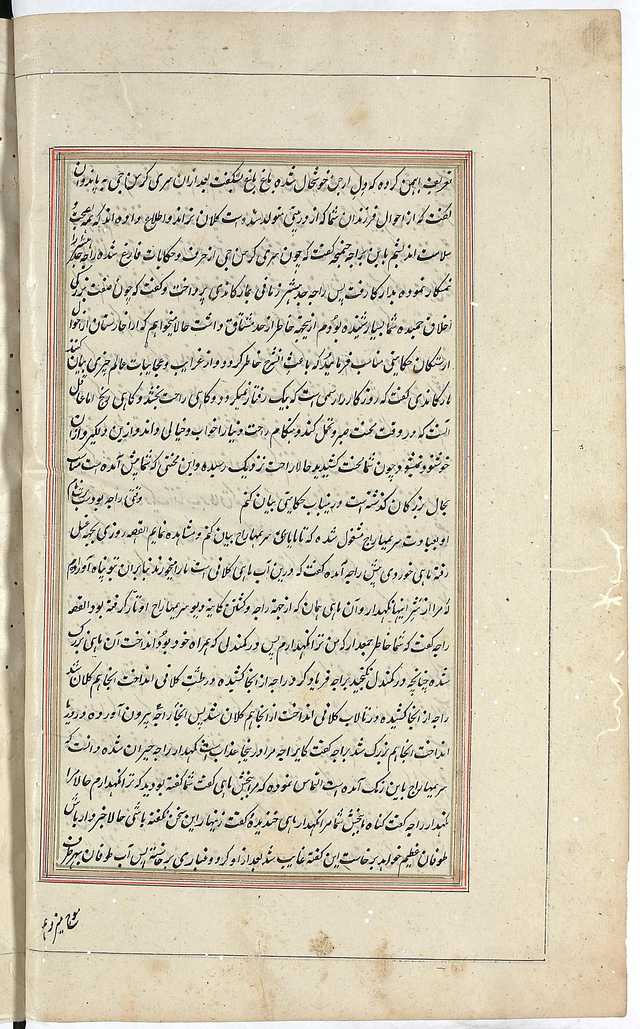 تعریف ایمن کرده که دل ارجن خوشحال شده باغ باغ بشکفت بعد ازان سری کرشن جی به پاندوان
گفت که از احوال فرزندان شما که از دروپدی متولد شدند
سلامت اند باین راجه گفت که چون سری کرشن جی از حرف و حکایات فارغ شده راجه
نمسکار نموده پس راجه جدهشتر زمانی بمارکاندی پرداخت و گفت که چون صفت بزرگی
اخلاق حمیده شما بسیار شنیده بودم ازینجهة خاطر از حد مشتاق داشت حالا میخواهم که از احوال
حکایتی مناسب فرمائید که باعث انشرح خاطر گردد و از غرایب و عجایبات عالم چیزی بیان کنند
مارکاندی گفت که روزگار را رسمی است که بیک رفتار نمیگردد و گاهی راحت بخشد و گاهی رنج اما عاقل
آنست که در وقت محنت صبر و تحمل کند و هنگام راحت دنیا را خواب و خیالی داند و ازین دلگیر و ازان
خوشنود نمیشود چون شما محنت کشیدید حالا راحت نزدیک رسیده و این محنتی که شما پیش آمده است
بحال بزرگان گذشته است درینباب حکایتی بیان کنم وقتی راجه بود
او بعبادت سریمهاراج مشغول شده که تا مایای سریمهاراج بیان کنم و مشاهده نمایم القصه روزی بجهة غسل
رفته ماهی خوردی پیش راجه آمده گفت که درین آب ماهی کلانی است مارا میخورند بنابران بتو پناه آوردم
مرا از شر اینها نگهدار و آن ماهی همان که ازجهة راجه و کشتن دیو سریمهاراج اوتار گرفته بود القصه
راجه گفت که شما خاطر جمعدار که من ترا نگهدارم پس در کمندلی که همراه خود بود انداخت آن ماهی بزرگ
شده چنانچه در کمندل نگنجید براجه فریاد کرد راجه از انجا کشیده در طشت کلانی انداخت انجا هم کلان شد
راجه از انجا کشیده در تالاب کلانی انداخت از انجا هم کلان شد پس انجا راجه بیرون آورده در دریا
انداخت انجا هم بزرگ شد براجه گفت که ای راجه مرا درینجا عذاب است نگهدار راجه حیران شده دانست که
سریمهاراج باین رنگ آمده است التماس نموده که مرا ببخش ماهی گفت شما گفته بودید که ترا نگهدارم حالا مرا
نگهدار راجه گفت گناه ببخش شما مرا نگهدار ماهی خندیده گفت زینهار این سخن نگفته باشی حالا خبردار باش
طوفان عظیم خواهد برخاست این گفته غایب شد بعد ازو گرد و غباری برخاسته پس آب طوفان بهر طرف